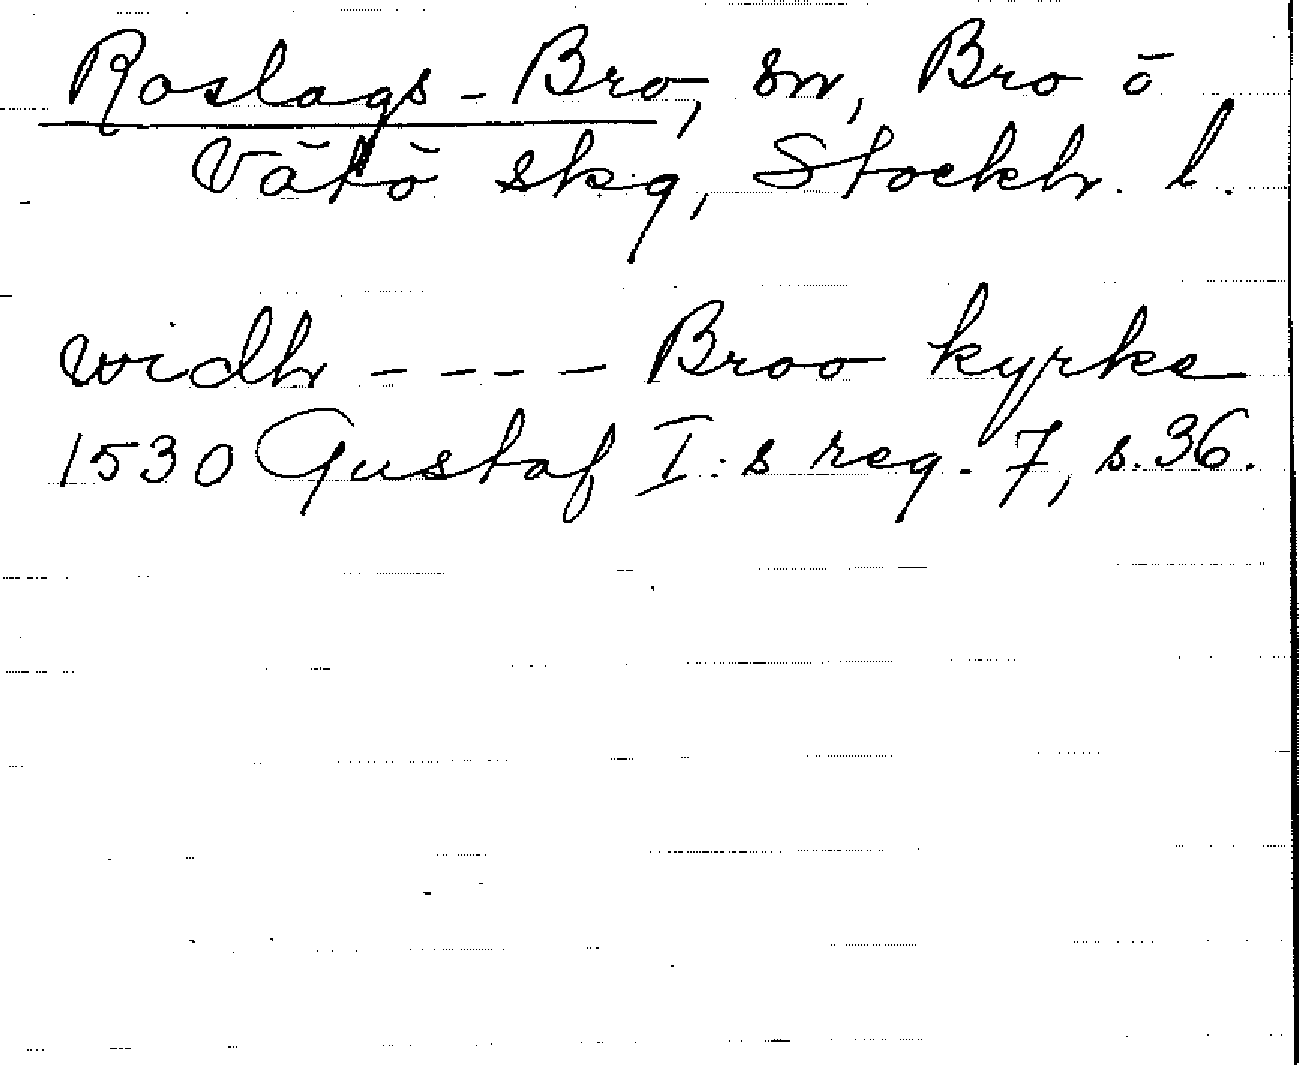 Roslags-Bro, sn, Bro ō
Vätö skg, Stockh. l.
widh ---- Broo kyrke
1530 Gustaf I:s reg. 7, s. 36.